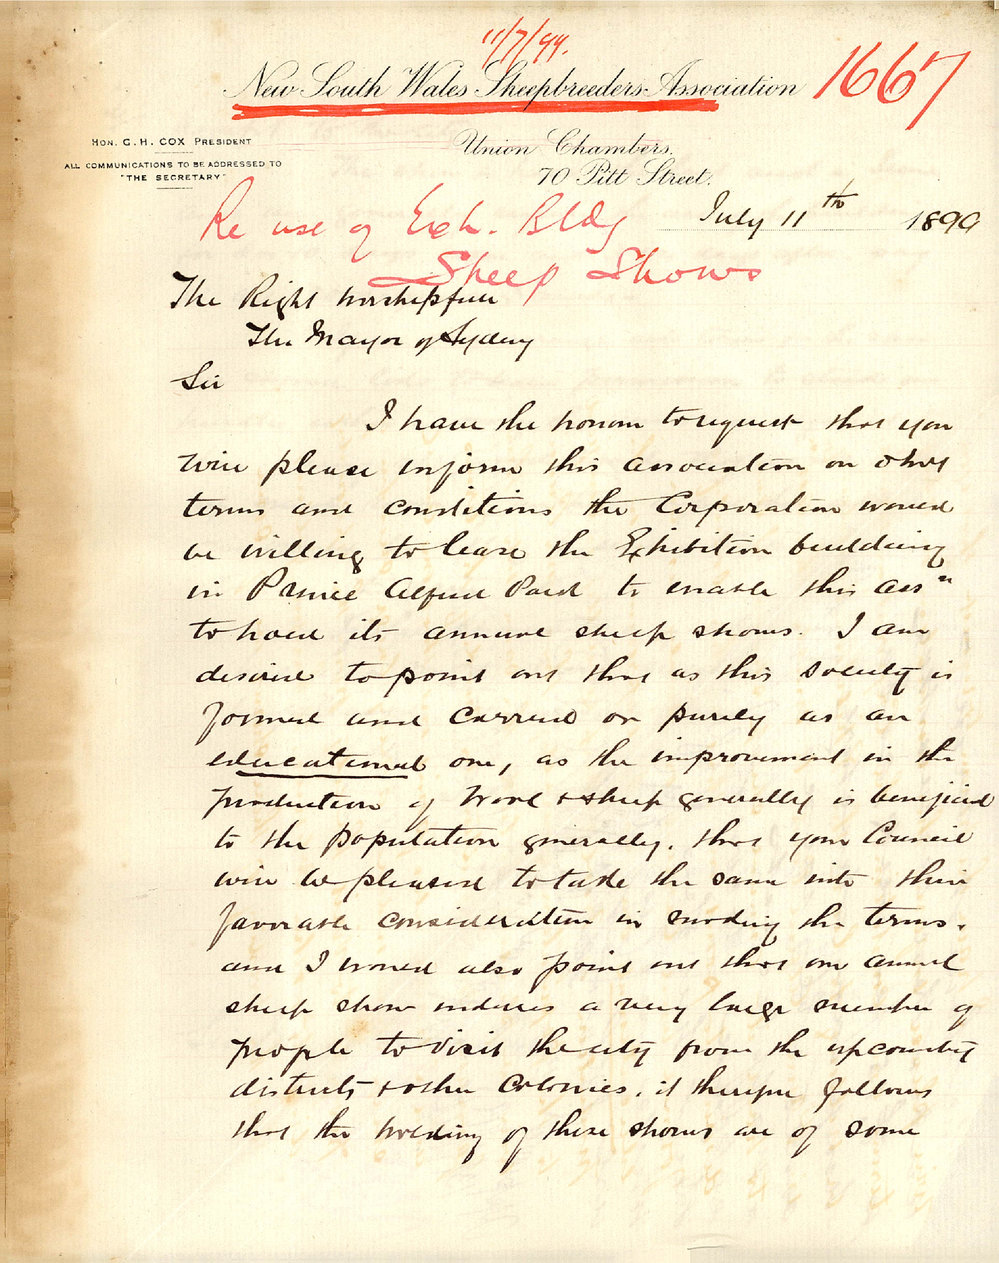 11/7/99.
New South Wales Sheepbreeders Association
1667
HON. G. H. COX PRESIDENT
ALL COMMUNICATIONS TO BE ADDRESSED TO
"THE SECRETARY"
Union Chambers.
70 Pitt Street.
Re use of Exh. Bldg
Sheep Shows
July 11th 1899
The Right Worshipfull
The Mayor of Sydney
Sir
I have the honour to request that you
will please inform this association on what
terms and conditions the Corporation would
be willing to lease the Exhibition building
in Prince Alfred Park to enable this Assn
to hold its annual sheep shows. I am
desired to point out that as this society is
formed and carried on purely as an
educational one, as the improvement in the
production of wool & sheep generally is beneficial
to the population generally, that your Council
will be pleased to take the same into their
favorable consideration in making the terms.
and I would also point out that our annual
sheep show induces a very large number of
people to visit the city from the upcountry
districts & other Colonies, it therefore follows
that the holding of these shows are of some